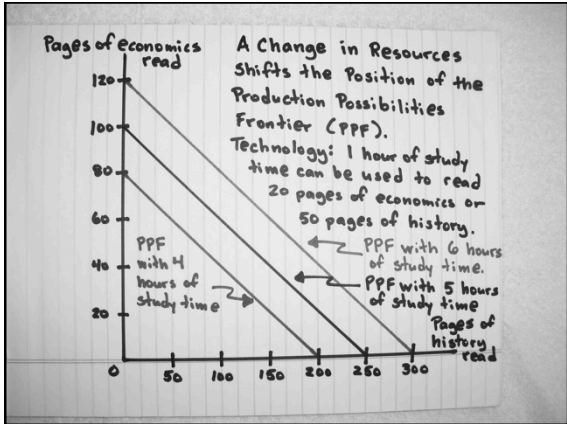 Pages of economics
read
A Change in Resources
Shifts the Position of the
Production Possibilities
Frontier (PPF).
Technology: 1 hour of study
time can be used to read
20 pages of economics or
50 pages of history.
120
100
80
60
40
20
PPF
with 4
hours of
study time
PPF with 6 hours
of study time.
PPF with 5 hours
of study time
Pages of
history
read
0
50
100
150
200
250
300